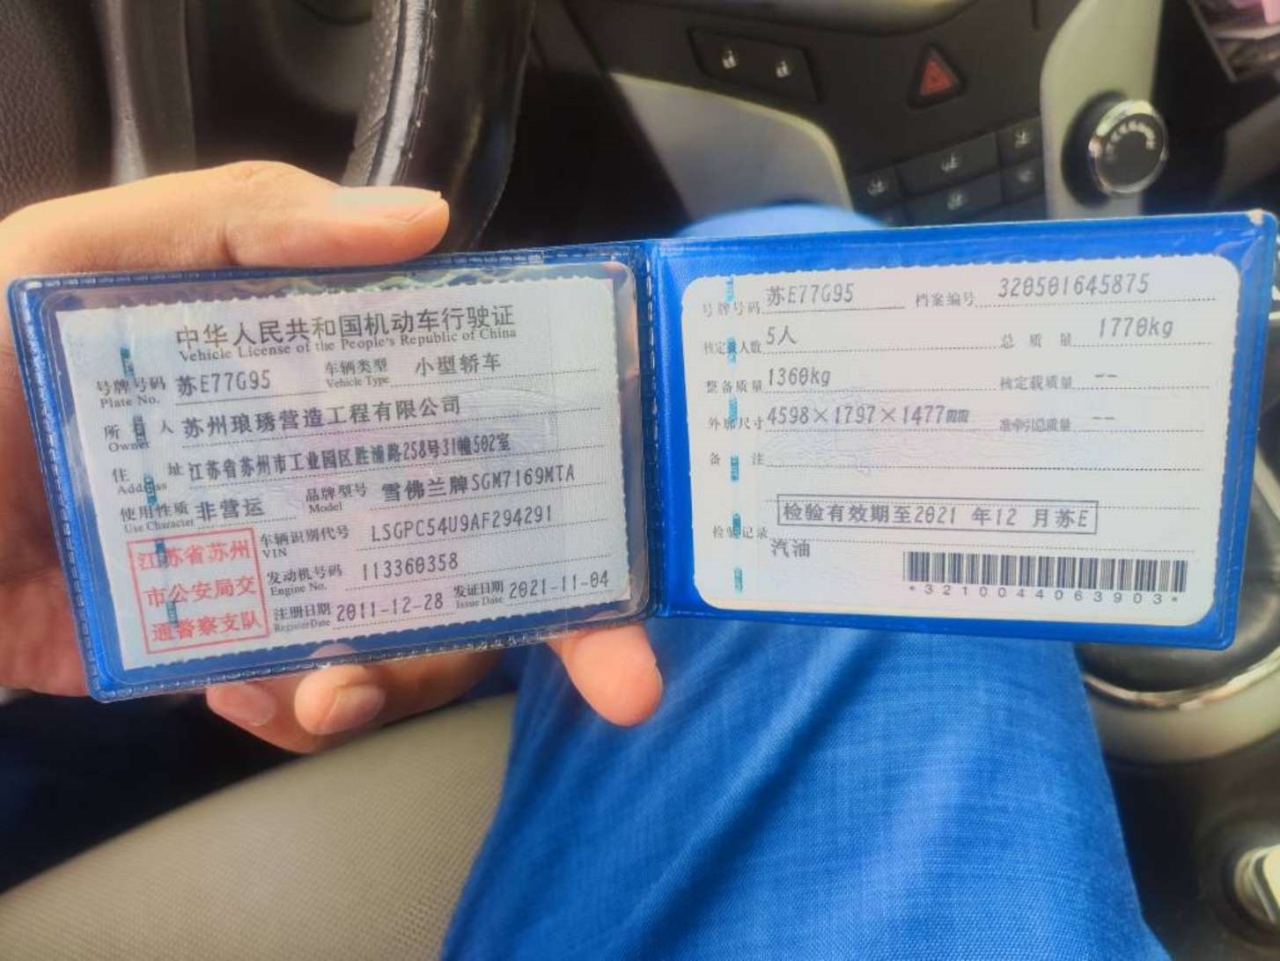 中华人民共和国机动车行驶证
Vehicle License of the People's Republic of China
号牌号码 苏E77G95 车辆类型 小型轿车
Plate No. Vehicle Type
所 人 苏州琅琇营造工程有限公司
Owner
住 址 江苏省苏州市工业园区胜浦路258号31幢502室
Address
使用性质 非营运 品牌型号 雪佛兰牌SGM7169MTA
Use Character Model
江苏省苏州
市公安局交
通警察支队
车辆识别代号 LSGPC54U9AF294291
VIN
发动机号码 113360358
Engine No.
注册日期 2011-12-28 发证日期 2021-11-04
Register Date Issue Date
号牌号码 苏E77G95 档案编号 320501645875
核定载人数 5人 总质量 1770kg
整备质量 1360kg 核定载质量 --
外廓尺寸 4598×1797×1477mm 准牵引总质量 --
备 注
检验有效期至2021 年12 月苏E
检验记录
汽油
*3210044063903*